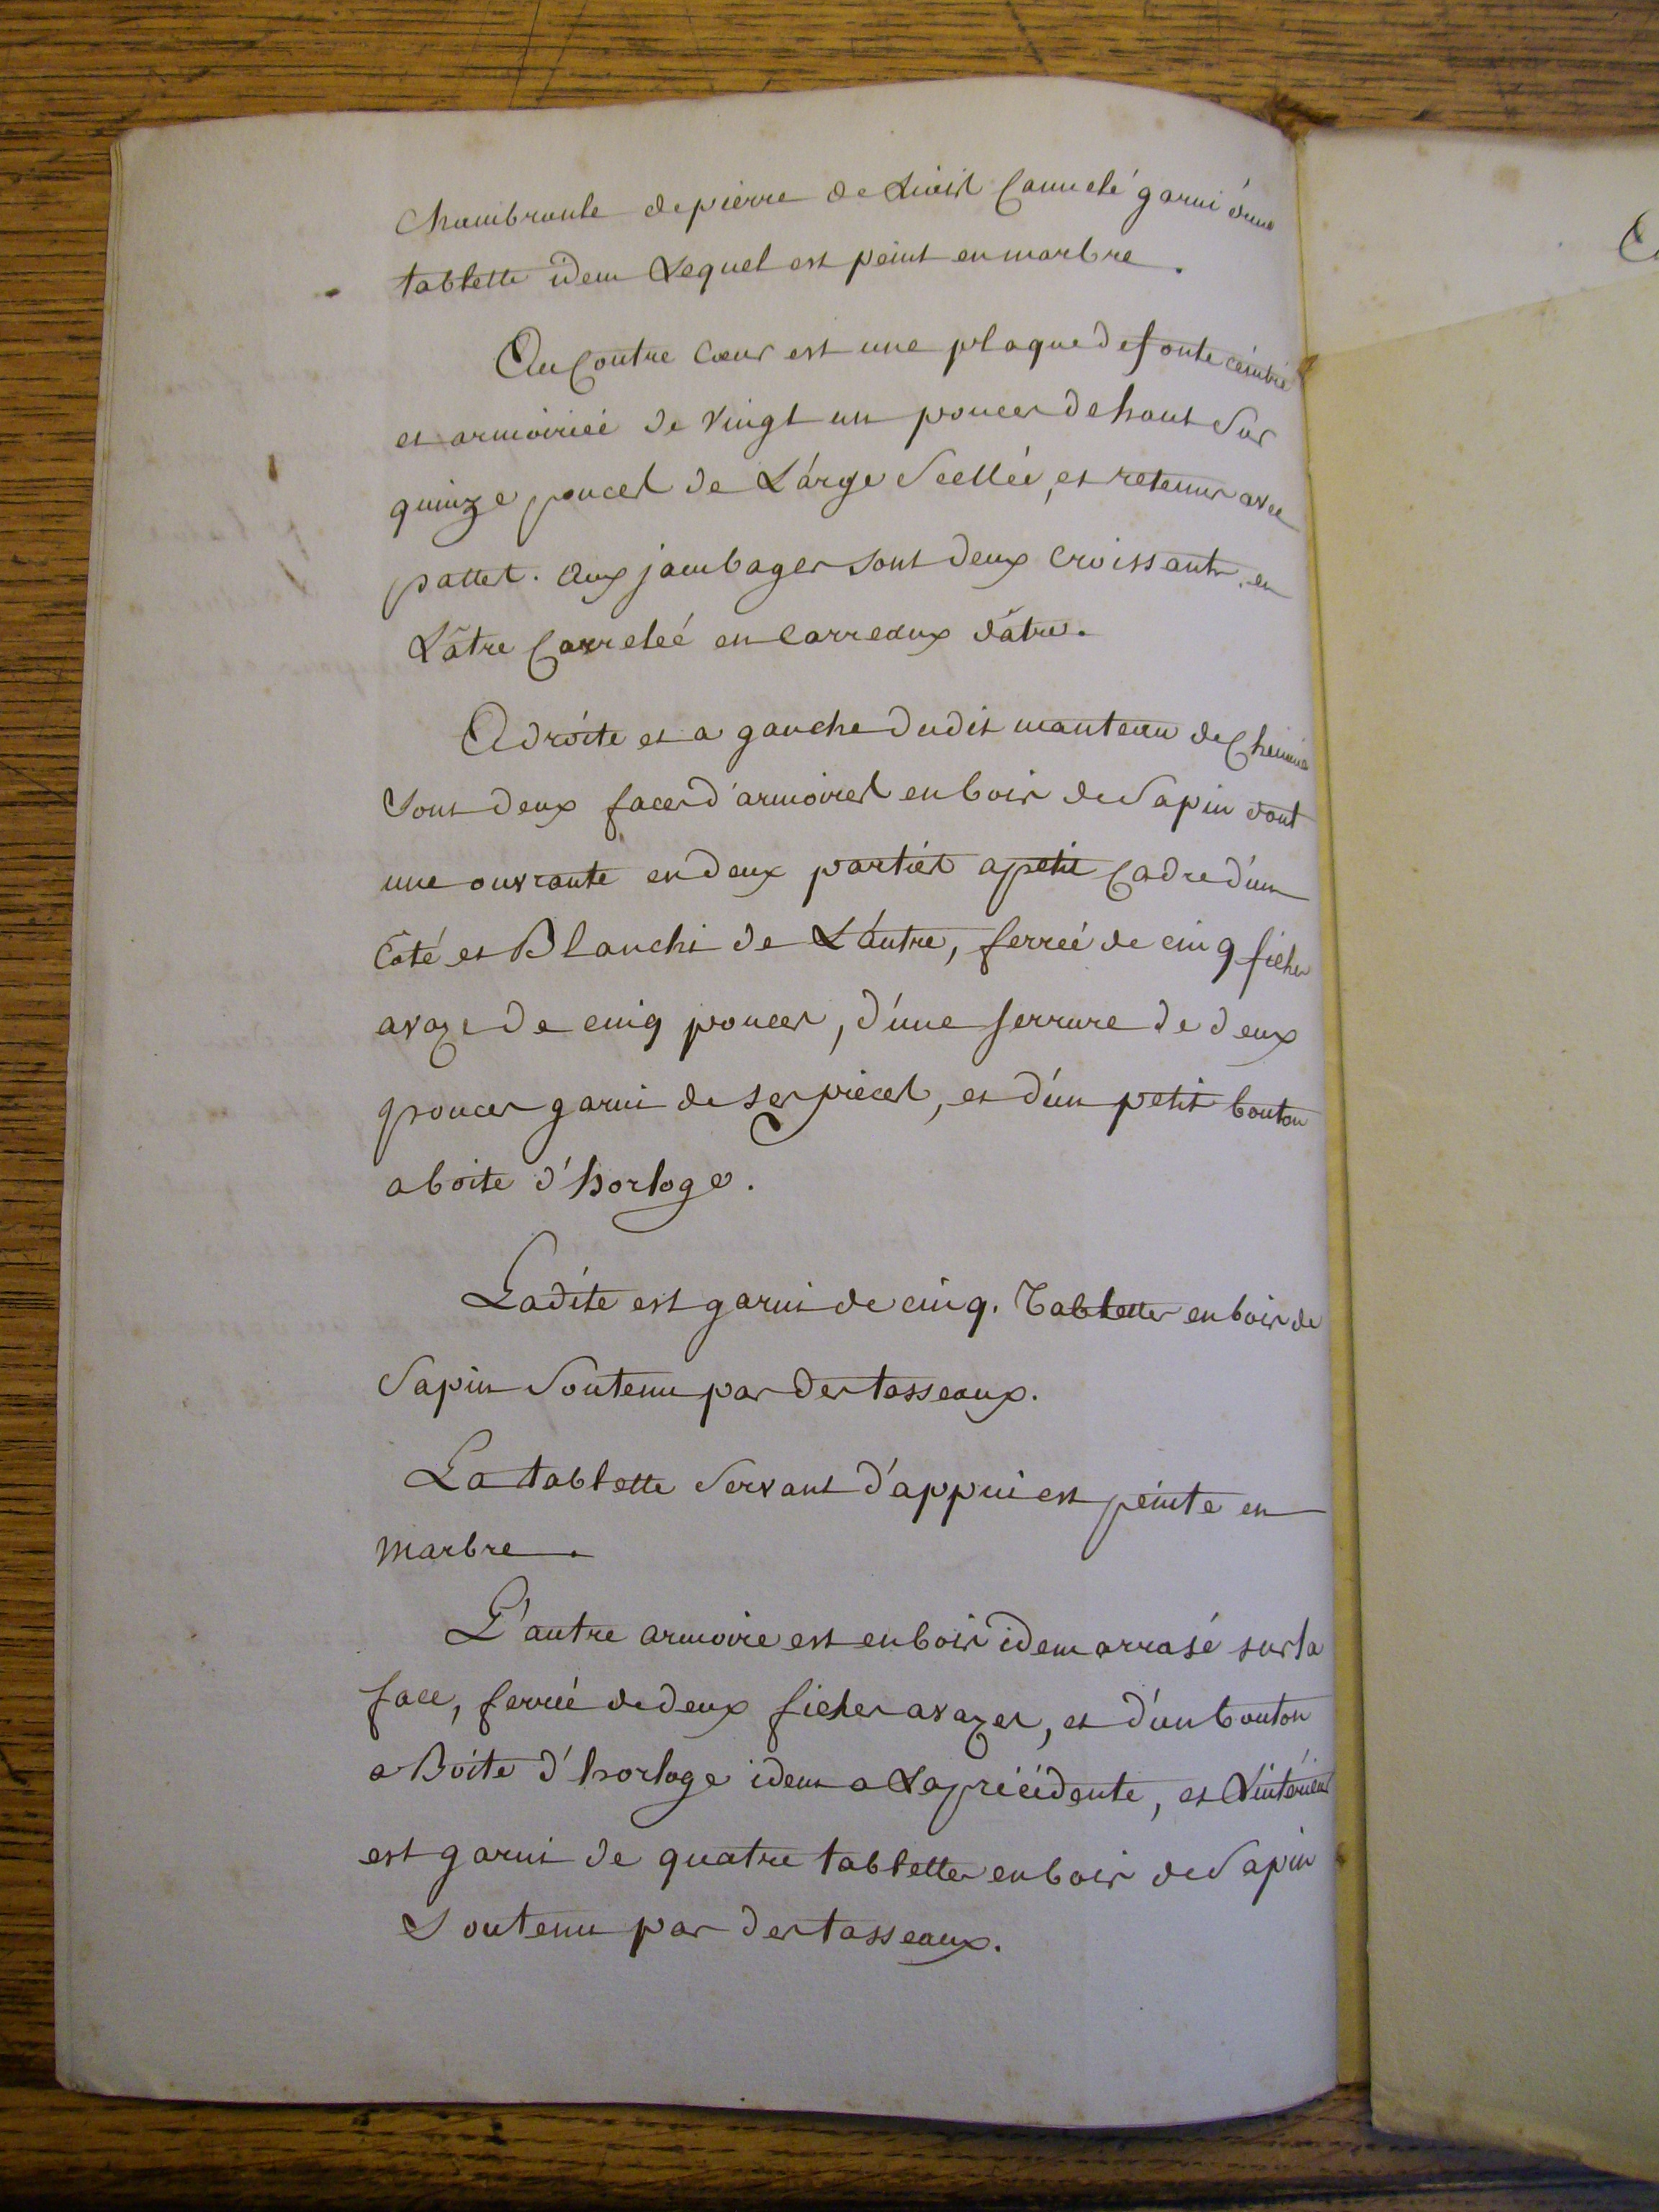 Chambranle de pierre de Liais Cannelé garni d'une
tablette idem Lequel est peint en marbre.
Au Contre Cœur est une plaque de fonte ceintré
et armoiriéé de Vingt un pouces de haut Sur
quinze pouces de Lárge Scellée, et retenue avec
pattes. Aux jambages sont deux Croissants, et
L'âtre Carreleé en Carreaux d'âtre.
A droite et a gauche dudit manteau de Cheminé
Sont deux faces d'armoires en bois de Sapin dont
une ouvrante en deux parties a petit Cadre d'un
Côté et Blanchi de L'autre, ferreé de cinq fiches
a vaze de cinq pouces, d'une serrure de deux
pouces garni de ses pieces, et d'un petit bouton
a boite d'horloge.
Ladite est garni de cinq. Tablettes en bois de
Sapin Soutenu par des tasseaux.
La tablette Servant d'appui est peinte en
Marbre.
L'autre armoire est en bois idem arrasé sur la
face, ferreé de deux fiches a vazes, et d'un bouton
a Boite d'horloge idem a La précédente, et L'intérieur
est garni de quatre tablettes en bois de Sapin
Soutenu par des tasseaux.